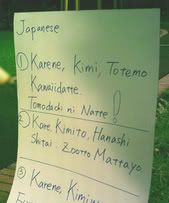 Japanese
① Karene, Kimi, Totemo
Kawaiidatte.
Tomodachi ni Natte!
② Kare, Kimito, Hanashi
Shitai. Zootto Mattayo
③ Karene, Kimiw